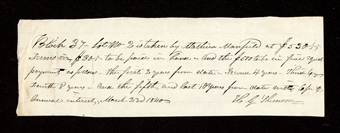 Block 37. Lot No 2 is taken by Matthew Maxfield at $530.00
Terms $30.00 to be paid in hand and the $500 to be in five equal
payments as follows. the first 2 years from date. Second 4 years. Third 6 years
fourth 8 years. and the fifth and last 10 years from date with
Annual interest, March 23rd 1840
H. G.